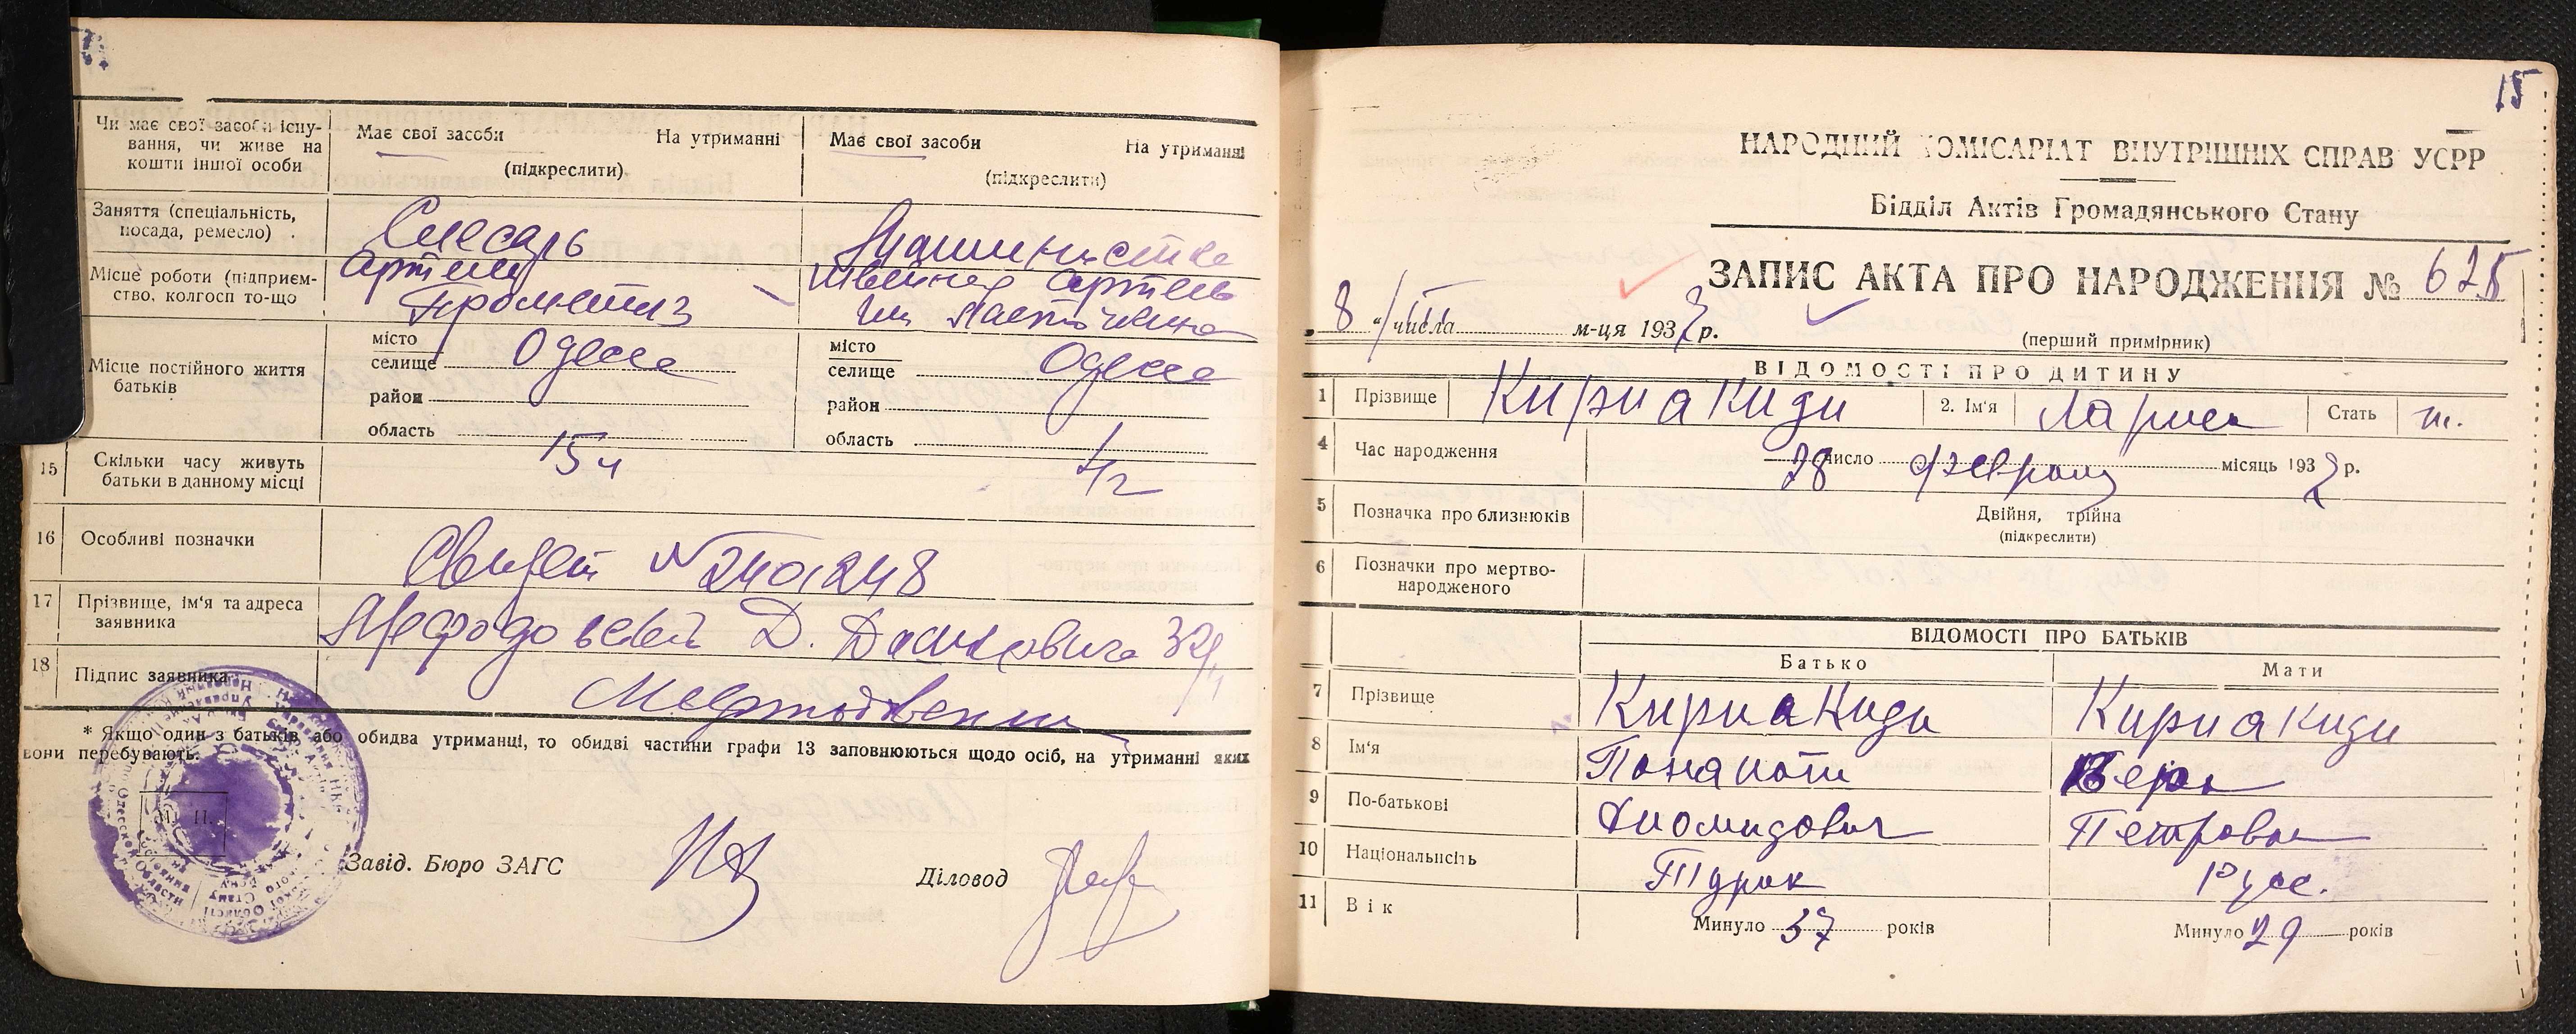 Чи має свої засоби існу-
вання, чи живе на
кошти іншої особи
Має свої засоби На утриманні
(підкреслити)
Має свої засоби На утриманні
(підкреслити)
Заняття (спеціальність,
посада, ремесло)
Слесарь
Машинистка
Місце роботи (підприєм-
ство, колгосп то-що
Артель
Прометиз
Швейная артель
им Ласточкина
Місце постійного життя
батьків
місто
селище Одесса
район
область
місто
селище Одесса
район
область
15 Скільки часу живуть
батьки в данному місці
15 ч
16 Особливі позначки
Свидет № 240248
17 Прізвище, ім'я та адреса
заявника
Д.
18 Підпис заявника
* Якщо один з батьків, або обидва утриманці, то обидві частини графи 13 заповнюються щодо осіб, на утриманні яких
вони перебувають.
М. П.
Завід. Бюро ЗАГС
Діловод
15
НАРОДНИЙ КОМІСАРІАТ ВНУТРІШНІХ СПРАВ УСРР
Відділ Актів Громадянського Стану
ЗАПИС АКТА ПРО НАРОДЖЕННЯ № 625
"8" числа III м-ця 1937 р.
(перший примірник)
ВІДОМОСТІ ПРО ДИТИНУ
1 Прізвище Кириакиди 2. Ім'я Лариса Стать ж.
4 Час народження 28 число февраля місяць 1937 р.
5 Позначка про близнюків Двійня, трійна
(підкреслити)
6 Позначки про мертво-
народженого
ВІДОМОСТІ ПРО БАТЬКІВ
Батько Мати
7 Прізвище Кириакиди Кириакиди
8 Ім'я Панаиоти Вера
9 По-батькові Диомидович Петровна
10 Національність Турок Русс.
11 Вік Минуло 37 років Минуло 29 років